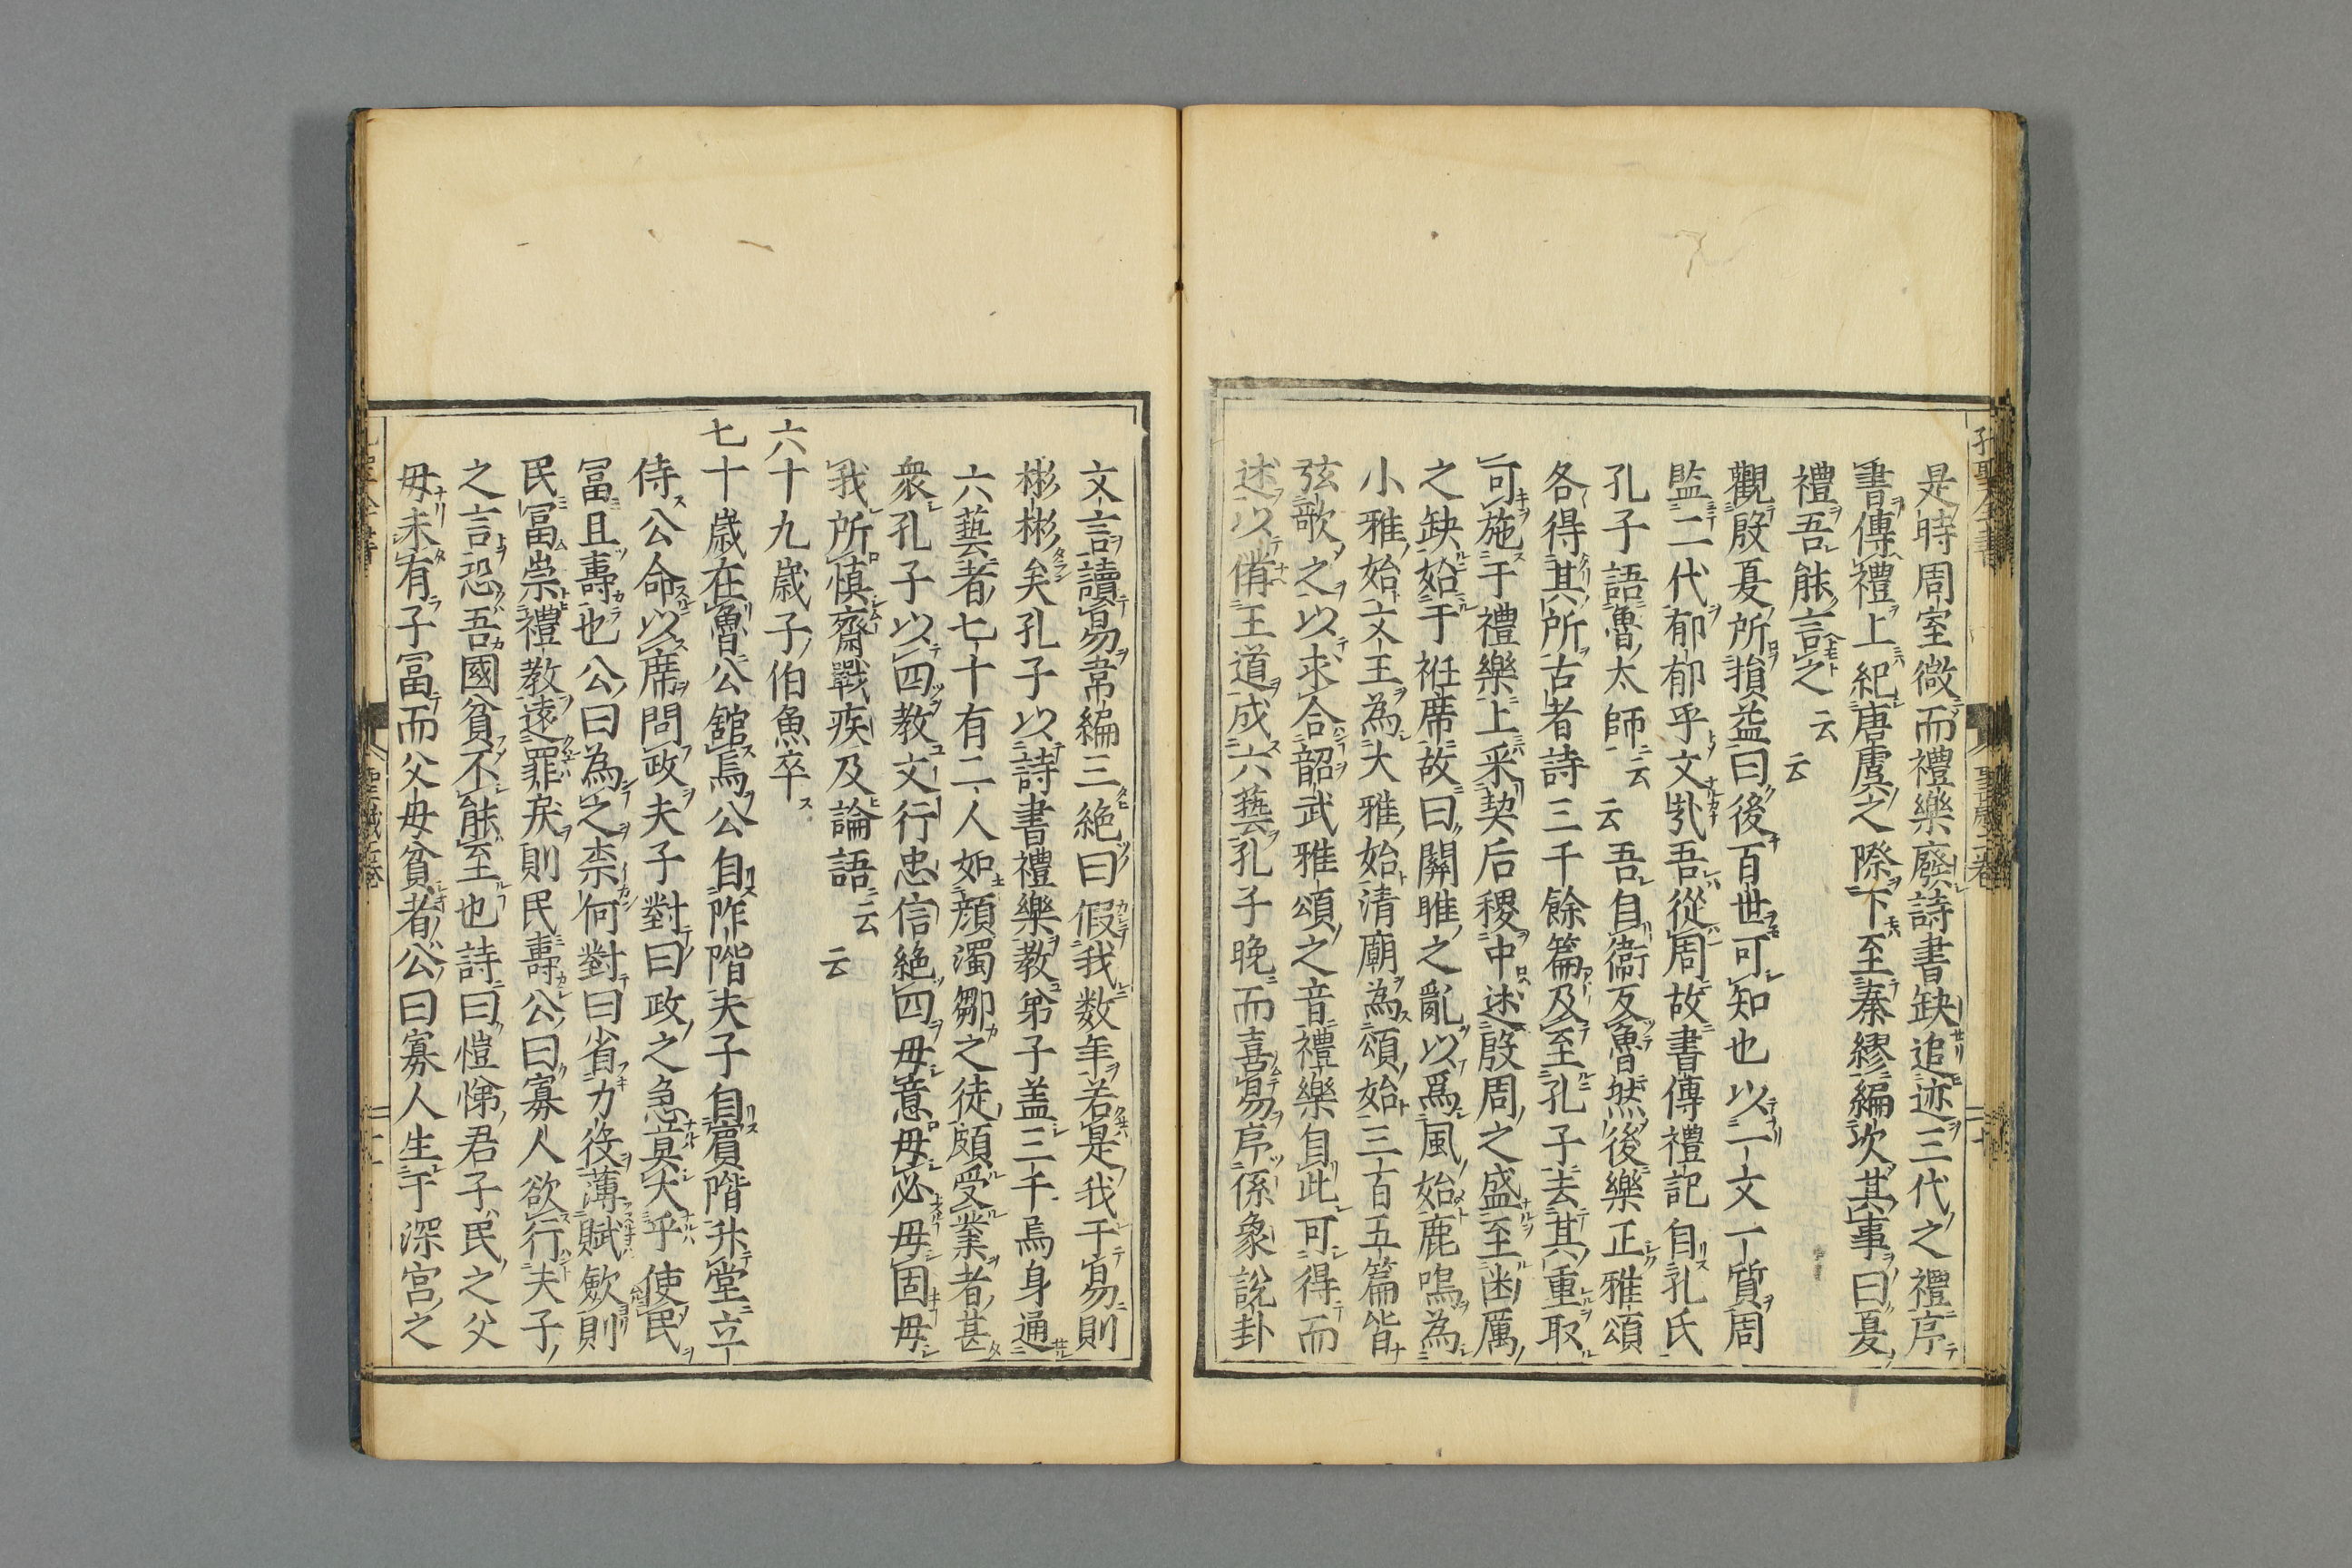 是時周室微而禮樂廢詩書缺追迹三代之禮序
書傳禮上紀唐虞之際下至秦繆編次其事曰夏
禮吾能言之云云
觀殷夏所損益曰後百世可知也以一文一質周
監二代郁郁乎文哉吾從周故書傳禮記自孔氏
孔子語魯太師云云吾自衛反魯然後樂正雅頌
各得其所古者詩三千餘篇及至孔子去其重取
可施于禮樂上采契后稷中述殷周之盛至幽厲
之缺始于袵席故曰關雎之亂以爲風始鹿鳴為
小雅始文王為大雅始清廟為頌始三百五篇皆
弦歌之以求合韶武雅頌之音禮樂自此可得而
述以備王道成六藝孔子晚而喜易序係象說卦
文言讀易韋編三絶曰假我数年若是我于易則
彬彬矣孔子以詩書禮樂教弟子盖三千焉身通
六藝者七十有二人如顔濁鄒之徒頗受業者甚
衆孔子以四教文行忠信絶四毋意毋必毋固毋
我所慎齋戰疾及論語云云
六十九歳子伯魚卒
七十歳在魯公舘焉公自阼階夫子自賓階升堂立
侍公命以席問政夫子對曰政之急莫大乎使民
冨且壽也公曰為之柰何對曰省力役薄賦斂則
民冨崇禮教遠罪戾則民壽公曰寡人欲行夫子
之言恐吾國貧不能至也詩曰愷悌君子民之父
毋未有子冨而父母貧者公曰寡人生于深宮之